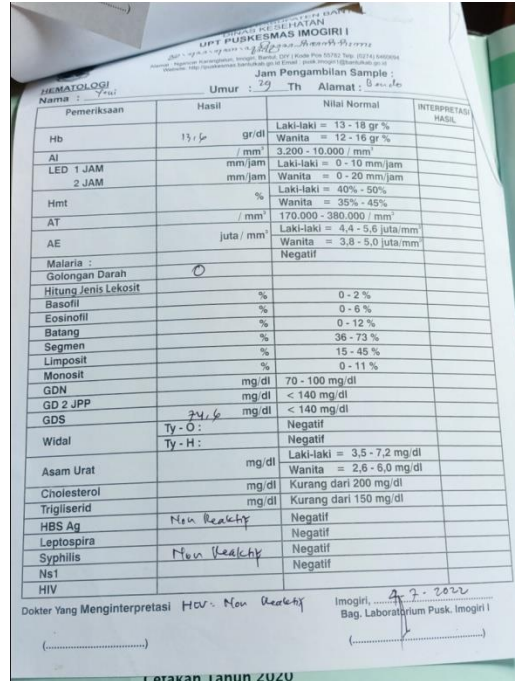 KESEHATAN
UPT PUSKESMAS IMOGIRI I
Jam Pengambilan Sample :
HEMATOLOGI
Nama : Umur : 29 Th Alamat :
Pemeriksaan Hasil Nilai Normal INTERPRETASI HASIL
Hb 13,6 gr/dl Laki-laki = 13 - 18 gr %
Wanita = 12 - 16 gr %
Al / mm³ 3.200 - 10.000 / mm³
LED 1 JAM mm/jam Laki-laki = 0 - 10 mm/jam
2 JAM mm/jam Wanita = 0 - 20 mm/jam
Hmt % Laki-laki = 40% - 50%
Wanita = 35% - 45%
AT / mm³ 170.000 - 380.000 / mm³
AE juta/ mm³ Laki-laki = 4,4 - 5,6 juta/mm³
Wanita = 3,8 - 5,0 juta/mm³
Malaria : Negatif
Golongan Darah O
Hitung Jenis Lekosit
Basofil % 0 - 2 %
Eosinofil % 0 - 6 %
Batang % 0 - 12 %
Segmen % 36 - 73 %
Limposit % 15 - 45 %
Monosit % 0 - 11 %
GDN mg/dl 70 - 100 mg/dl
GD 2 JPP mg/dl < 140 mg/dl
GDS 74,6 mg/dl < 140 mg/dl
Widal Ty - O : Negatif
Ty - H : Negatif
Asam Urat mg/dl Laki-laki = 3,5 - 7,2 mg/dl
Wanita = 2,6 - 6,0 mg/dl
Cholesterol mg/dl Kurang dari 200 mg/dl
Trigliserid mg/dl Kurang dari 150 mg/dl
HBS Ag Non Reaktif Negatif
Leptospira Negatif
Syphilis Non Reaktif Negatif
Ns1 Negatif
HIV
Dokter Yang Menginterpretasi Non Reaktif
Imogiri, 4-7-2022
Bag. Laboratorium Pusk. Imogiri I
(..............................) (..............................)
Cetakan Tahun 2020